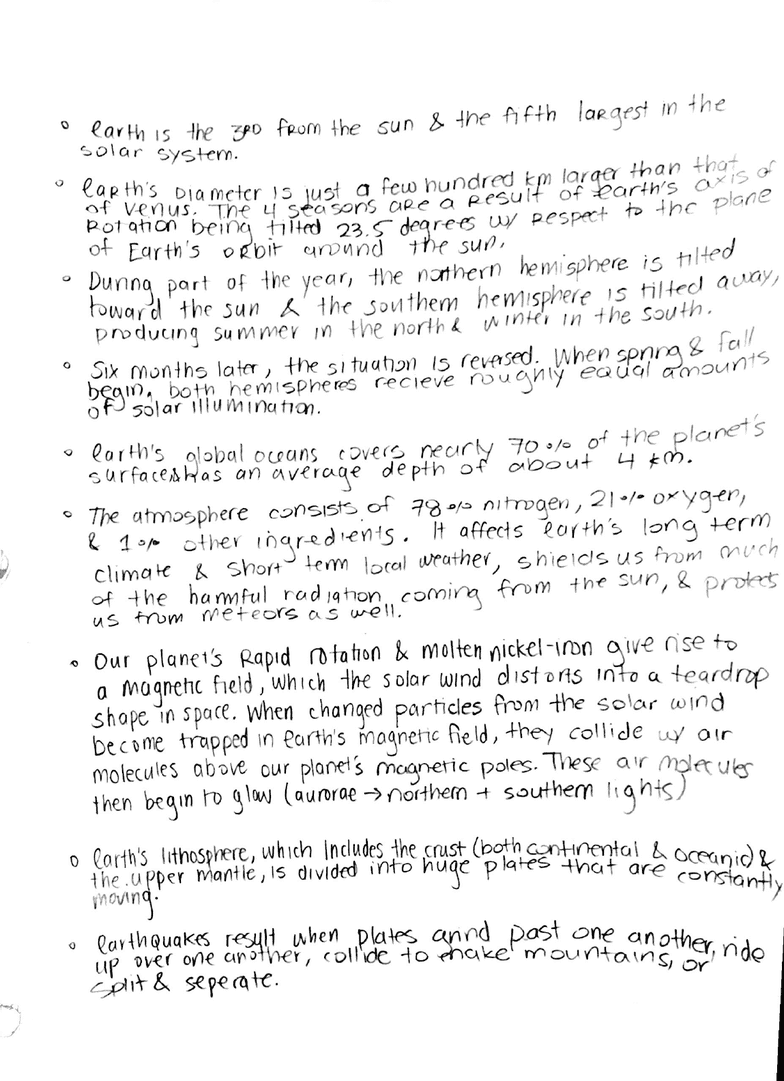 ° Earth is the 3RD from the sun & the fifth largest in the
solar system.
° Earth's Diameter is just a few hundred km larger than that
of Venus. The 4 seasons are a result of Earth's axis of
Rotation being tilted 23.5 degrees w/ respect to the plane
of Earth's orbit around the sun.
° During part of the year, the northern hemisphere is tilted
toward the sun & the southern hemisphere is tilted away,
producing summer in the north & winter in the south.
° Six months later, the situation is reversed. When spring & fall
begin, both hemispheres recieve roughly equal amounts
of solar illumination.
° Earth's global oceans covers nearly 70% of the planet's
surface & has an average depth of about 4 km.
° The atmosphere consists of 78% nitrogen, 21% oxygen,
& 1% other ingredients. It affects Earth's long term
climate & short term local weather, shields us from much
of the harmful radiation coming from the sun, & protects
us from meteors as well.
° Our planet's Rapid rotation & molten nickel-iron give rise to
a magnetic field, which the solar wind distorts into a teardrop
shape in space. When changed particles from the solar wind
become trapped in Earth's magnetic field, they collide w/ air
molecules above our planet's magnetic poles. These air molecules
then begin to glow (aurorae → northern + southern lights)
° Earth's lithosphere, which includes the crust (both continental & oceanic) &
the upper mantle, is divided into huge plates that are constantly
moving.
° Earthquakes result when plates grind past one another, ride
up over one another, collide to make mountains, or
split & seperate.